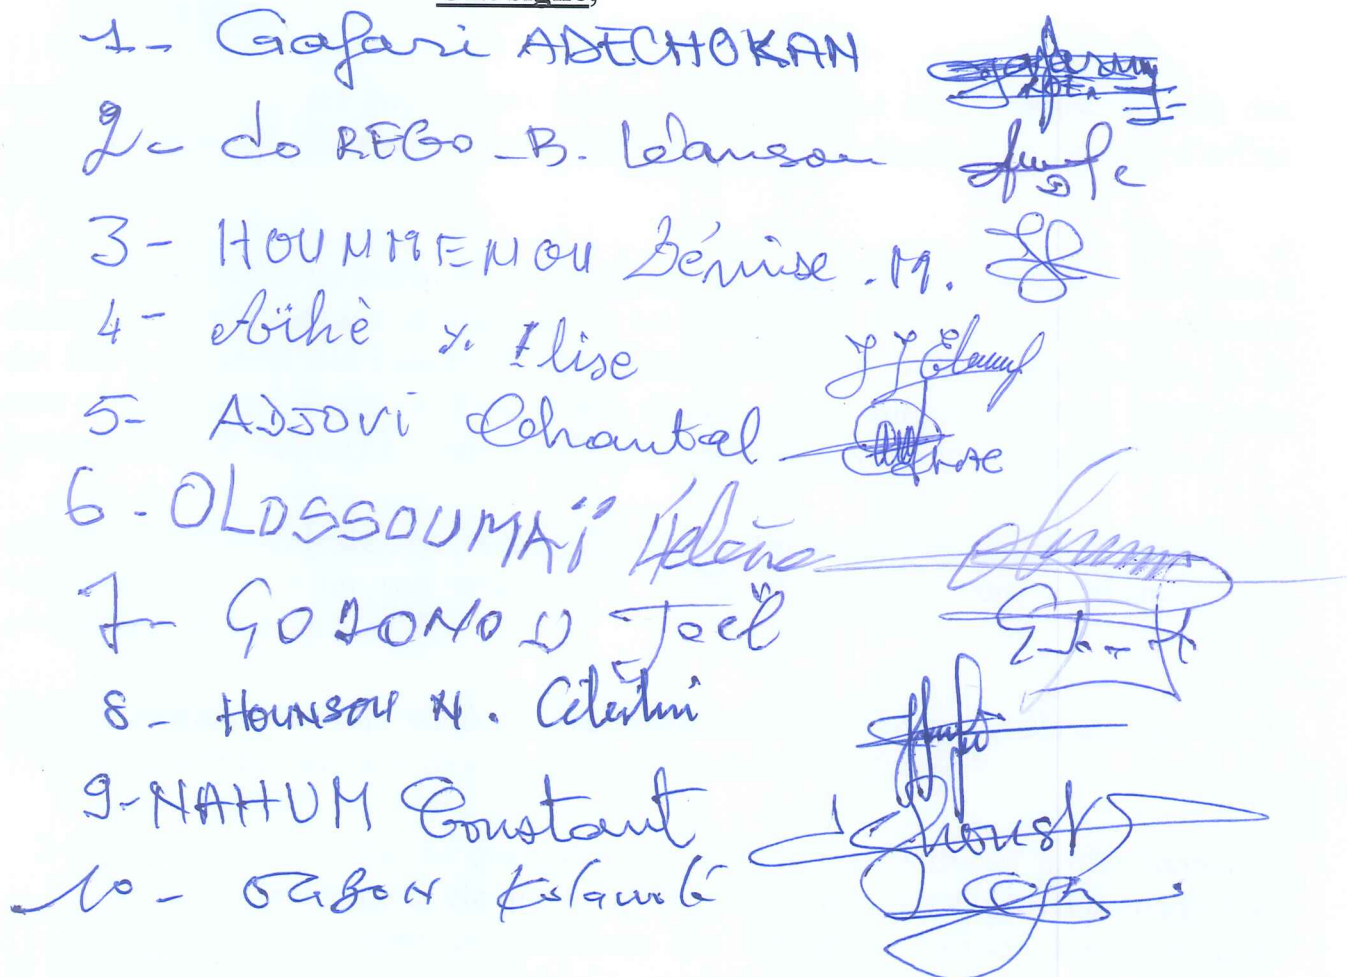 1- Gafari ADECHOKAN
2- do REGO - B. Léanson
3- HOUNMENOU Dénise .M.
4- Aïhè Y. Elise
5- ADJOVI Chantal
6 - OLOSSOUMAÏ Hélène
7- GODONOU Joël
8 - HOUNSOU N. Célestin
9-NAHUM Constant
10 - OGBON